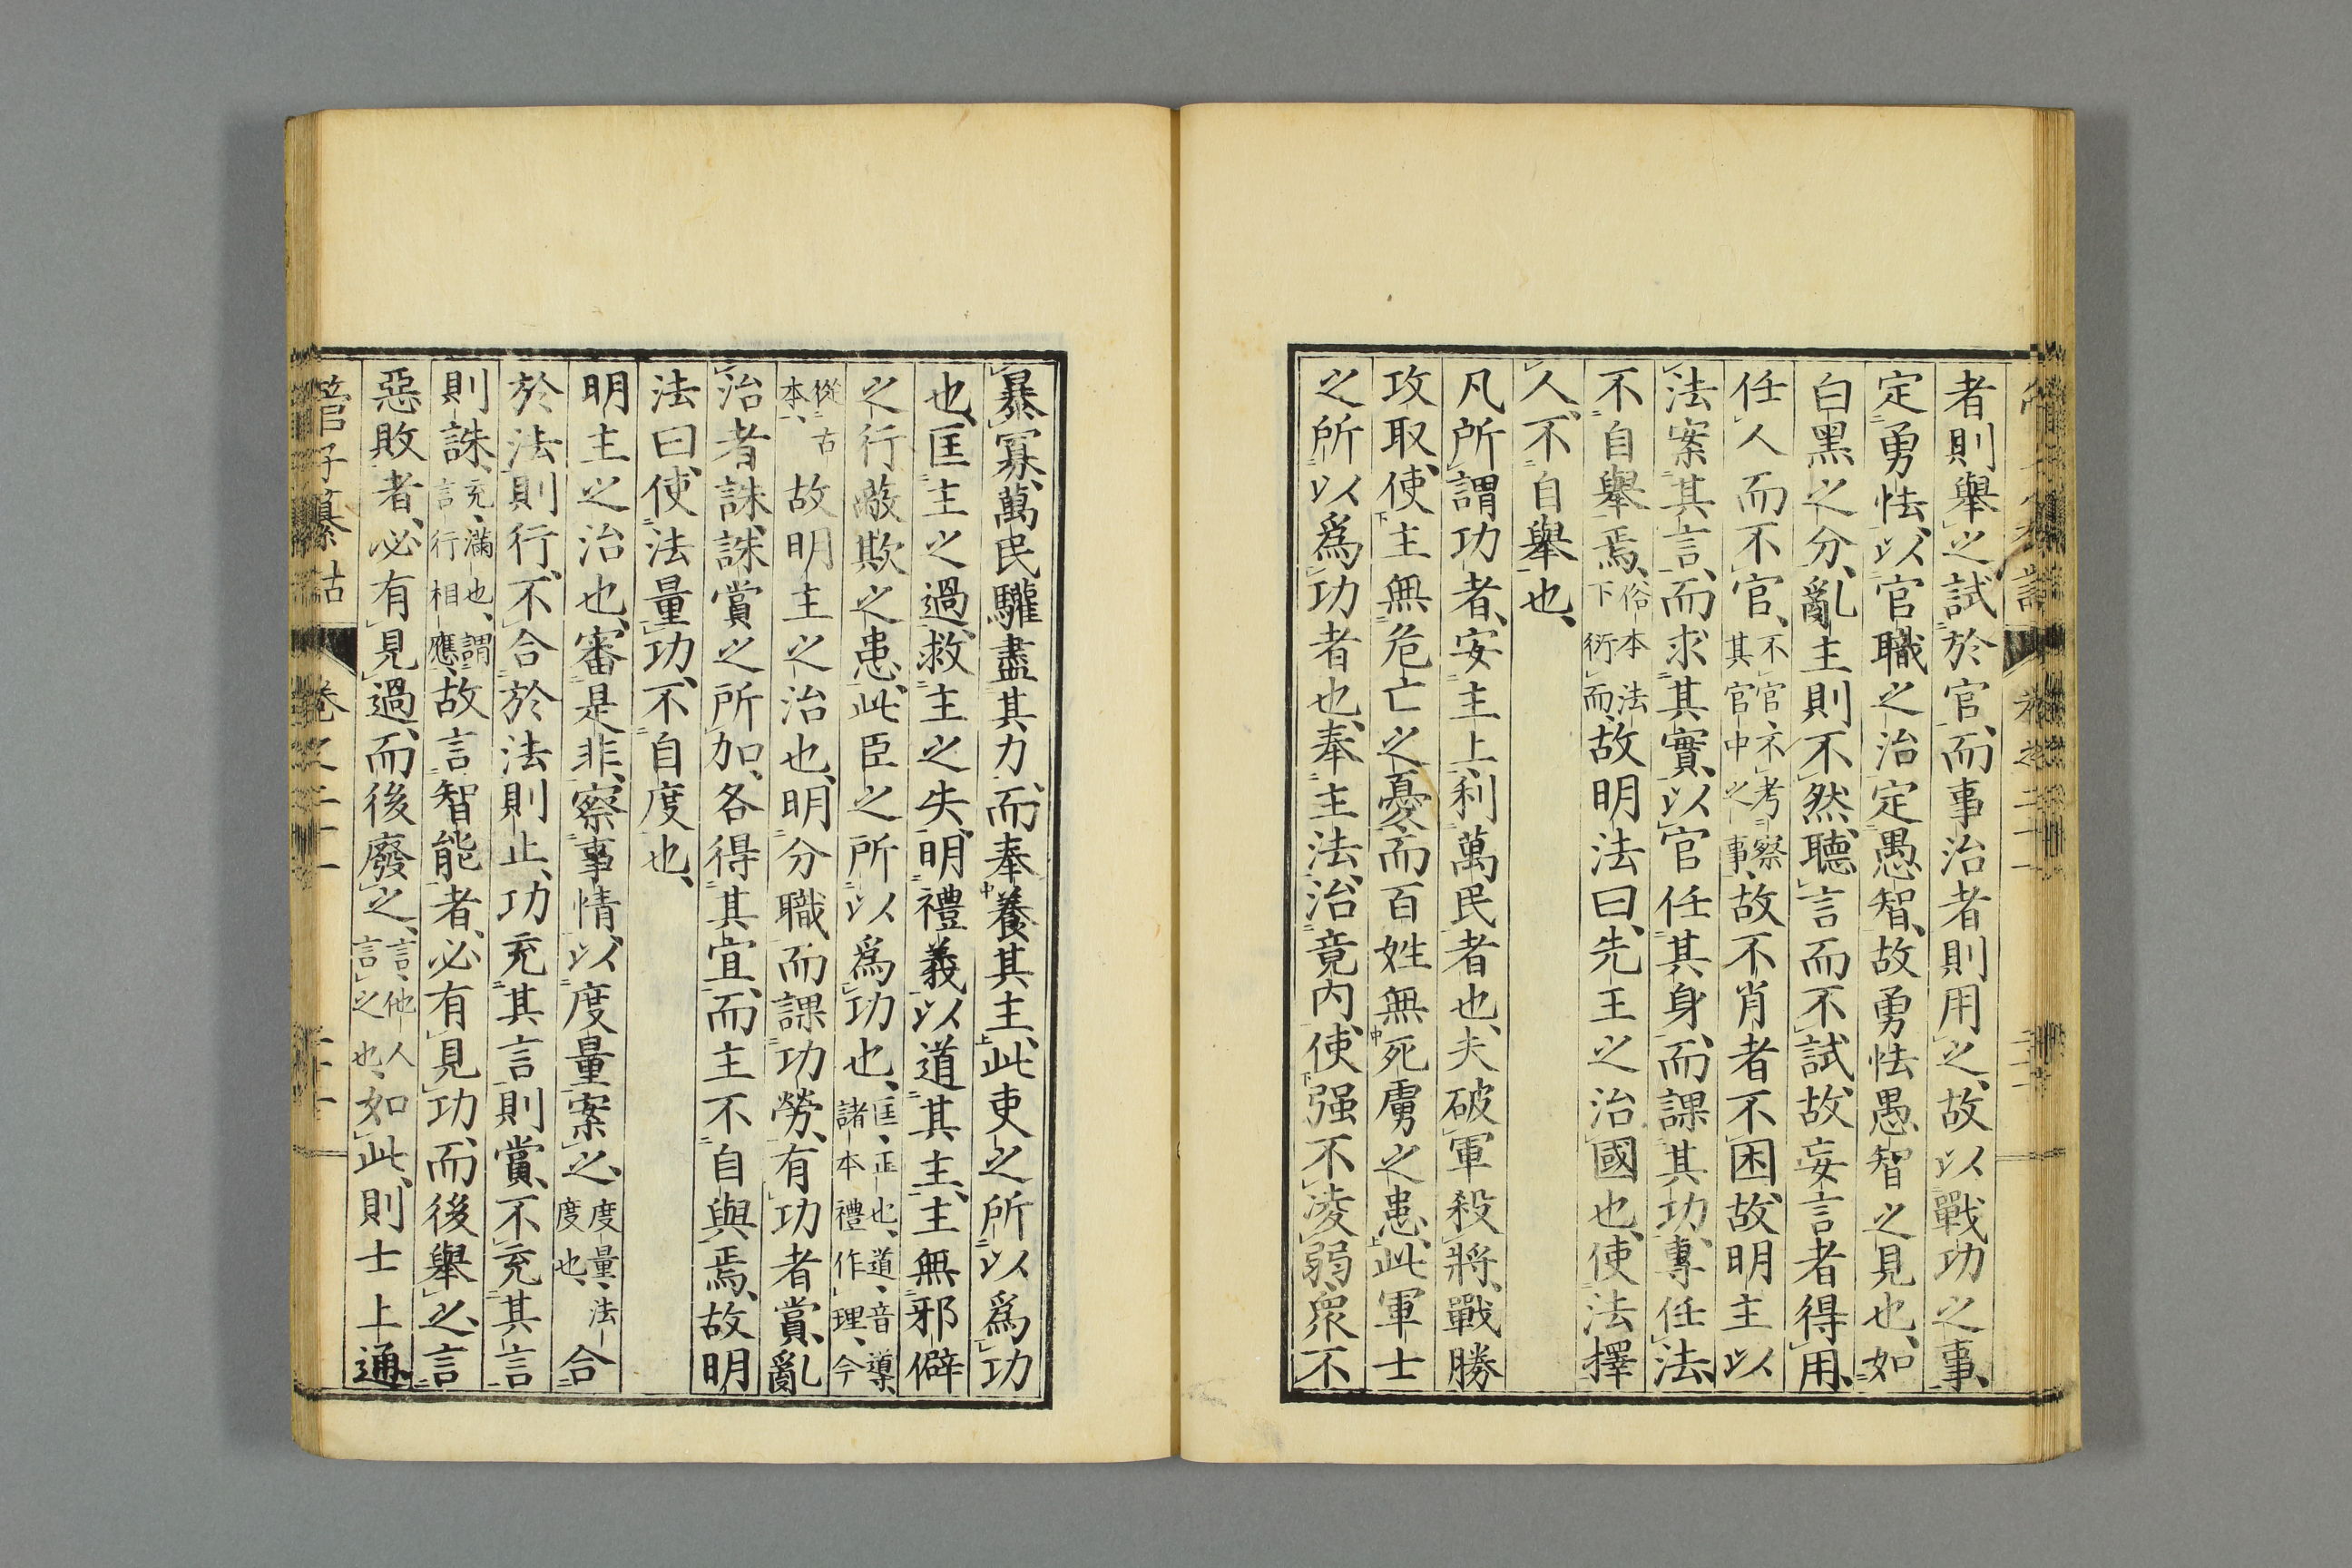 者則舉之試於官、而事治者則用之、故以戰功之事、
定勇怯、以官職之治定愚智、故勇怯愚智之見也、如
白黑之分、亂主則不然、聽言而不試、故妄言者得用、
任人而不官、不官、不考察其官中之事、故不肖者不困、故明主以
法案其言、而求其實、以官任其身、而課其功、專任法、
不自舉焉、俗本法下衍而、故明法曰、先王之治國也、使法擇
人、不自舉也、
凡所謂功者、安主上、利萬民者也、夫破軍殺將、戰勝
攻取、使主無危亡之憂、而百姓無死虜之患、此軍士
之所以爲功者也、奉主法、治竟內、使强不凌弱、衆不
暴寡、萬民驩盡其力、而奉養其主、此吏之所以爲功
也、匡主之過、救主之失、明禮義以道其主、主無邪僻
之行、蔽欺之患、此臣之所以爲功也、匡、正也、道、音導、諸本禮作理、今
從古本、故明主之治也、明分職而課功勞、有功者賞、亂
治者誅、誅賞之所加、各得其宜、而主不自與焉、故明
法曰、使法量功、不自度也、
明主之治也、審是非、察事情、以度量案之、度量、法度也、合
於法則行、不合於法則止、功充其言則賞、不充其言
則誅、充、滿也、謂言行相應、故言智能者、必有見功、而後舉之、言
惡敗者、必有見過、而後廢之、言、他人言之也、如此、則士上通
管子纂詁 卷之二十一